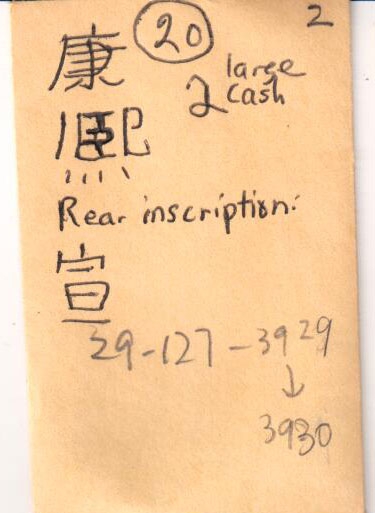 20
2
康
2 large
cash
熙
Rear inscription:
宣
29-127-3929
↓
3930